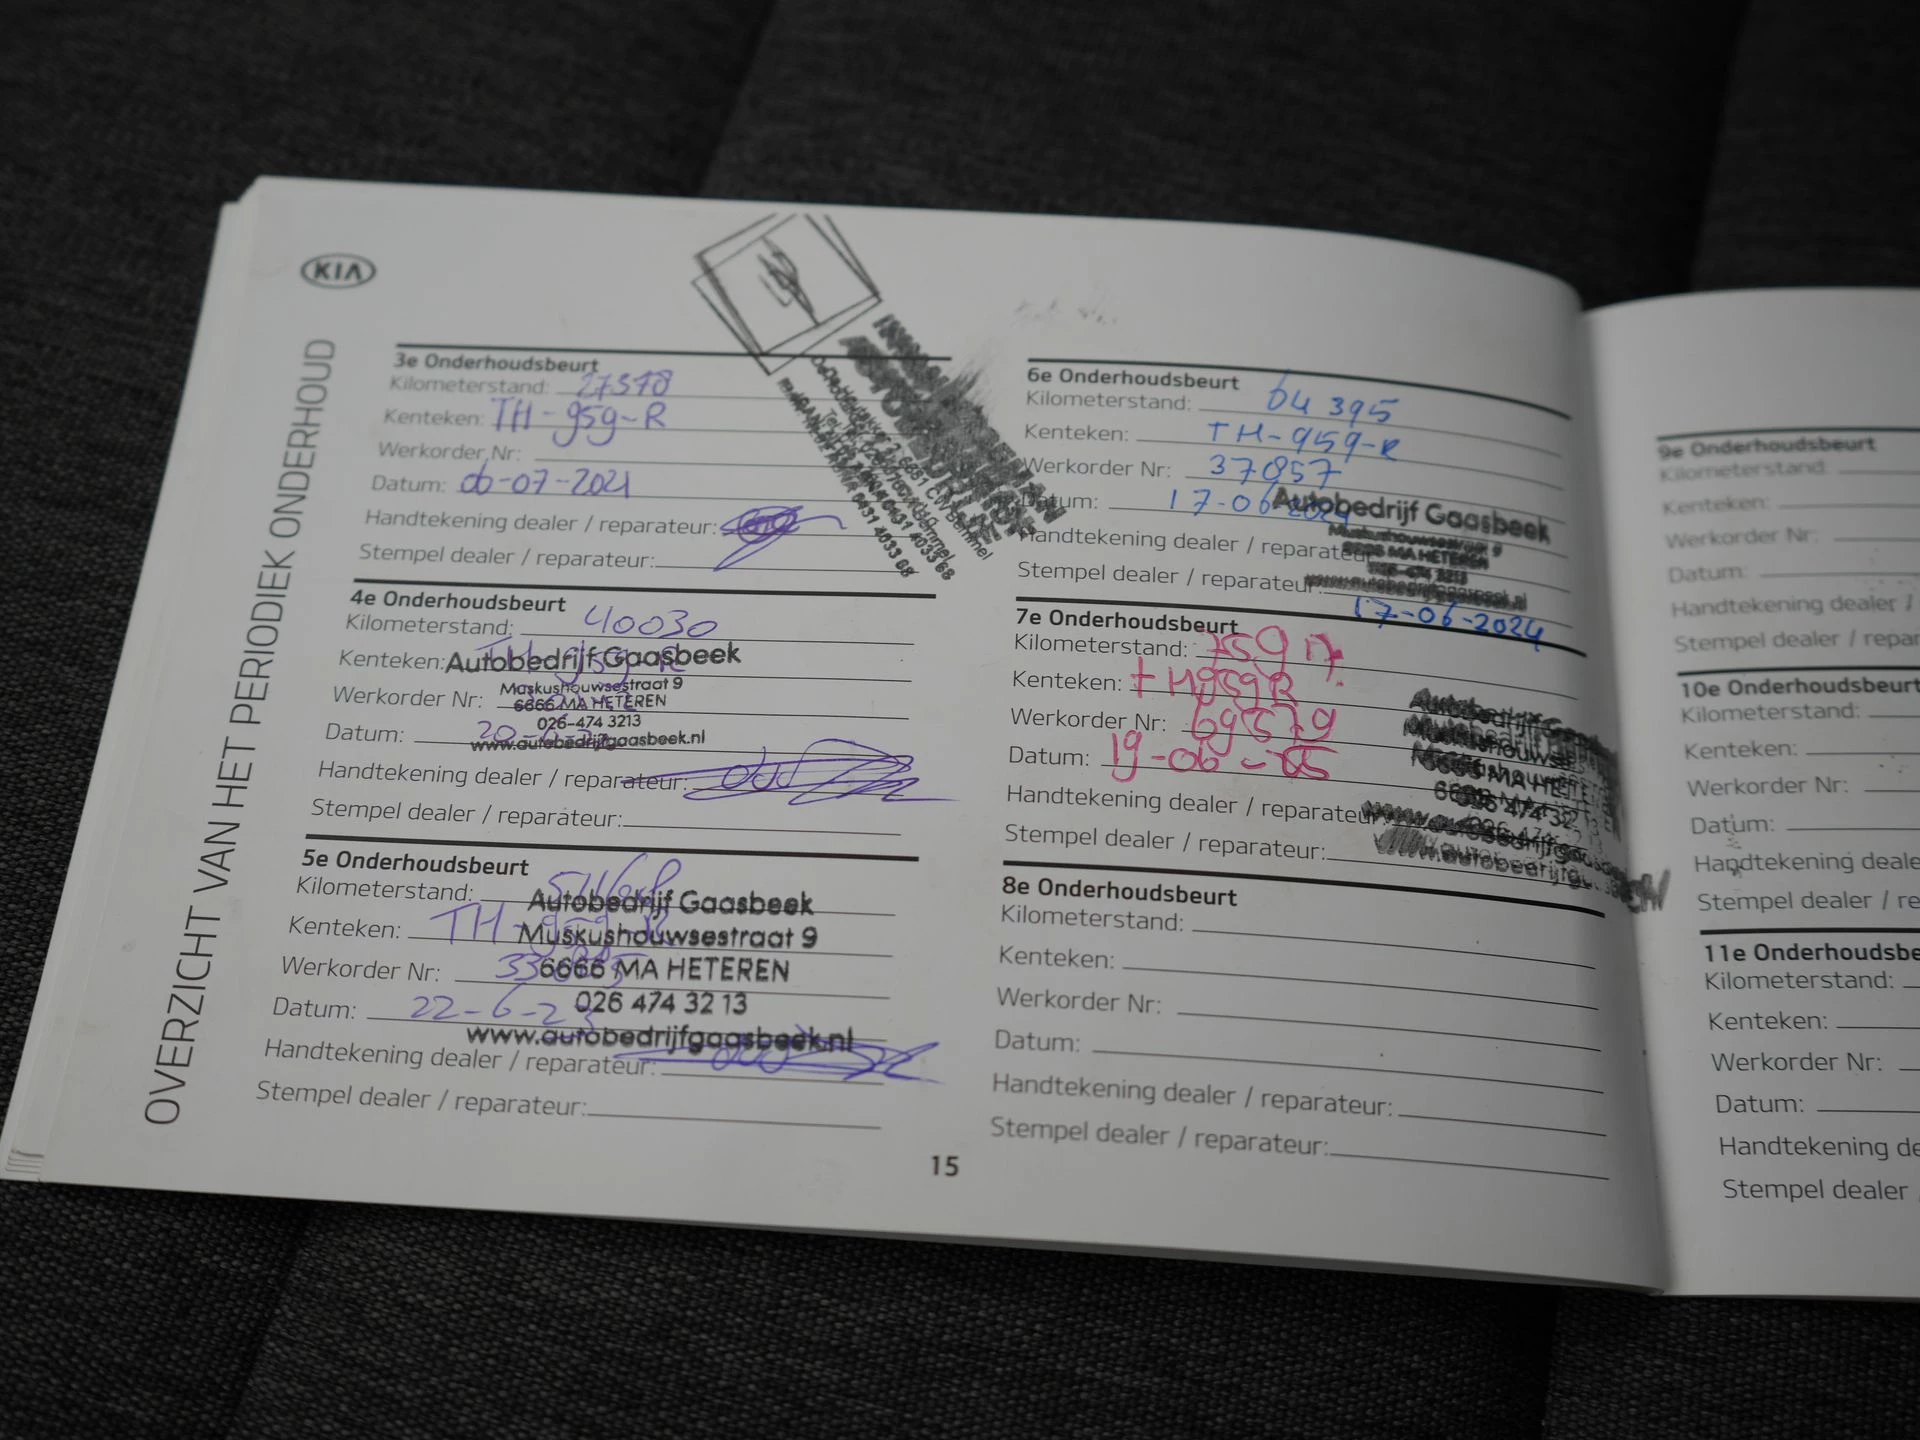 KIA
OVERZICHT VAN HET PERIODIEK ONDERHOUD
3e Onderhoudsbeurt
Kilometerstand: 27378
Kenteken: TH-959-R
Werkorder Nr:
Datum: 06-07-2021
Handtekening dealer / reparateur:
Stempel dealer / reparateur:
4e Onderhoudsbeurt
Kilometerstand: 40030
Kenteken:
Autobedrijf Gaasbeek
Muskushouwsestraat 9
Werkorder Nr:
6666 MA HETEREN
026-474 3213
Datum: 20-6-
www.autobedrijfgaasbeek.nl
Handtekening dealer / reparateur:
Stempel dealer / reparateur:
5e Onderhoudsbeurt
Kilometerstand:
Autobedrijf Gaasbeek
Kenteken: TH-959-R
Muskushouwsestraat 9
Werkorder Nr:
6666 MA HETEREN
Datum: 22-6-23
026 474 32 13
www.autobedrijfgaasbeek.nl
Handtekening dealer / reparateur:
Stempel dealer / reparateur:
6e Onderhoudsbeurt
Kilometerstand: 64 395
Kenteken: TH-959-R
Werkorder Nr: 37857
Datum: 17-06-2024
Autobedrijf Gaasbeek
Muskushouwsestraat 9
6666 MA HETEREN
026-474 3213
www.autobedrijfgaasbeek.nl
Handtekening dealer / reparateur:
Stempel dealer / reparateur:
17-06-2024
7e Onderhoudsbeurt
Kilometerstand:
Kenteken: TH959R
Werkorder Nr: 69579
Datum: 19-06-
Handtekening dealer / reparateur:
Stempel dealer / reparateur:
8e Onderhoudsbeurt
Kilometerstand:
Kenteken:
Werkorder Nr:
Datum:
Handtekening dealer / reparateur:
Stempel dealer / reparateur:
15
9e Onderhoudsbeurt
Kilometerstand:
Kenteken:
Werkorder Nr:
Datum:
Handtekening dealer /
Stempel dealer / repar
10e Onderhoudsbeurt
Kilometerstand:
Kenteken:
Werkorder Nr:
Datum:
Handtekening deale
Stempel dealer / re
11e Onderhoudsbe
Kilometerstand:
Kenteken:
Werkorder Nr:
Datum:
Handtekening de
Stempel dealer